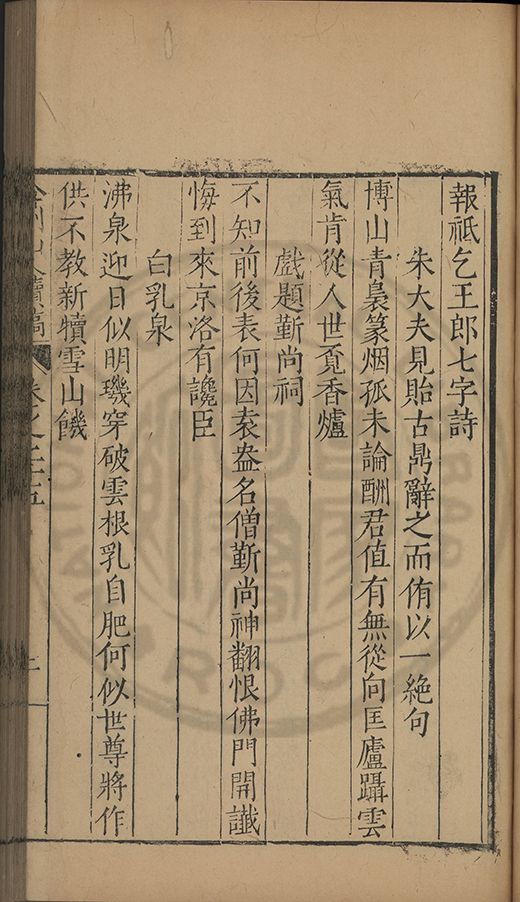 報祗乞王郎七字詩
朱大夫見貽古鼎辭之而侑以一絶句
博山青裊篆烟孤未論酬君值有無從向匡廬躡雲
氣肯從人世覔香爐
戲題靳尚祠
不知前後表何因袁盎名僧靳尚神翻恨佛門開讖
悔到來京洛有讒臣
白乳泉
沸泉迎日似明璣穿破雲根乳自肥何似世尊將作
供不教新犢雪山饑